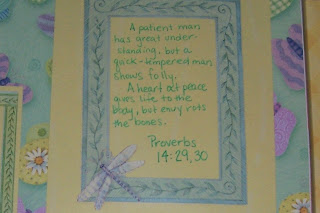 A patient man
has great under-
standing, but a
quick-tempered man
shows folly.
A heart at peace
gives life to the
body, but envy rots
the bones.
Proverbs
14:29,30